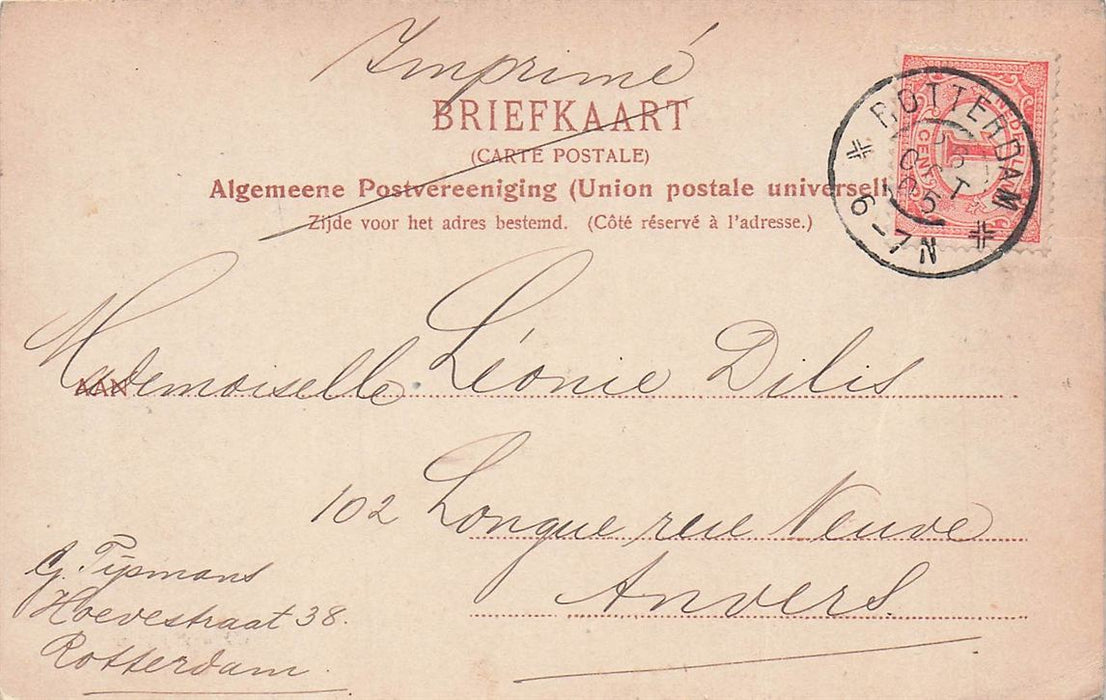 Imprimé
BRIEFKAART
(CARTE POSTALE)
Algemeene Postvereeniging (Union postale universell
Zijde voor het adres bestemd. (Côté réservé à l'adresse.)
NEDERLAND
1
CENT
ROTTERDAM
OCT
6-7N
AAN Mademoiselle Léonie Dilis
102 Longue rue Neuve
Anvers
G. Tijsmans
Hoevestraat 38.
Rotterdam.